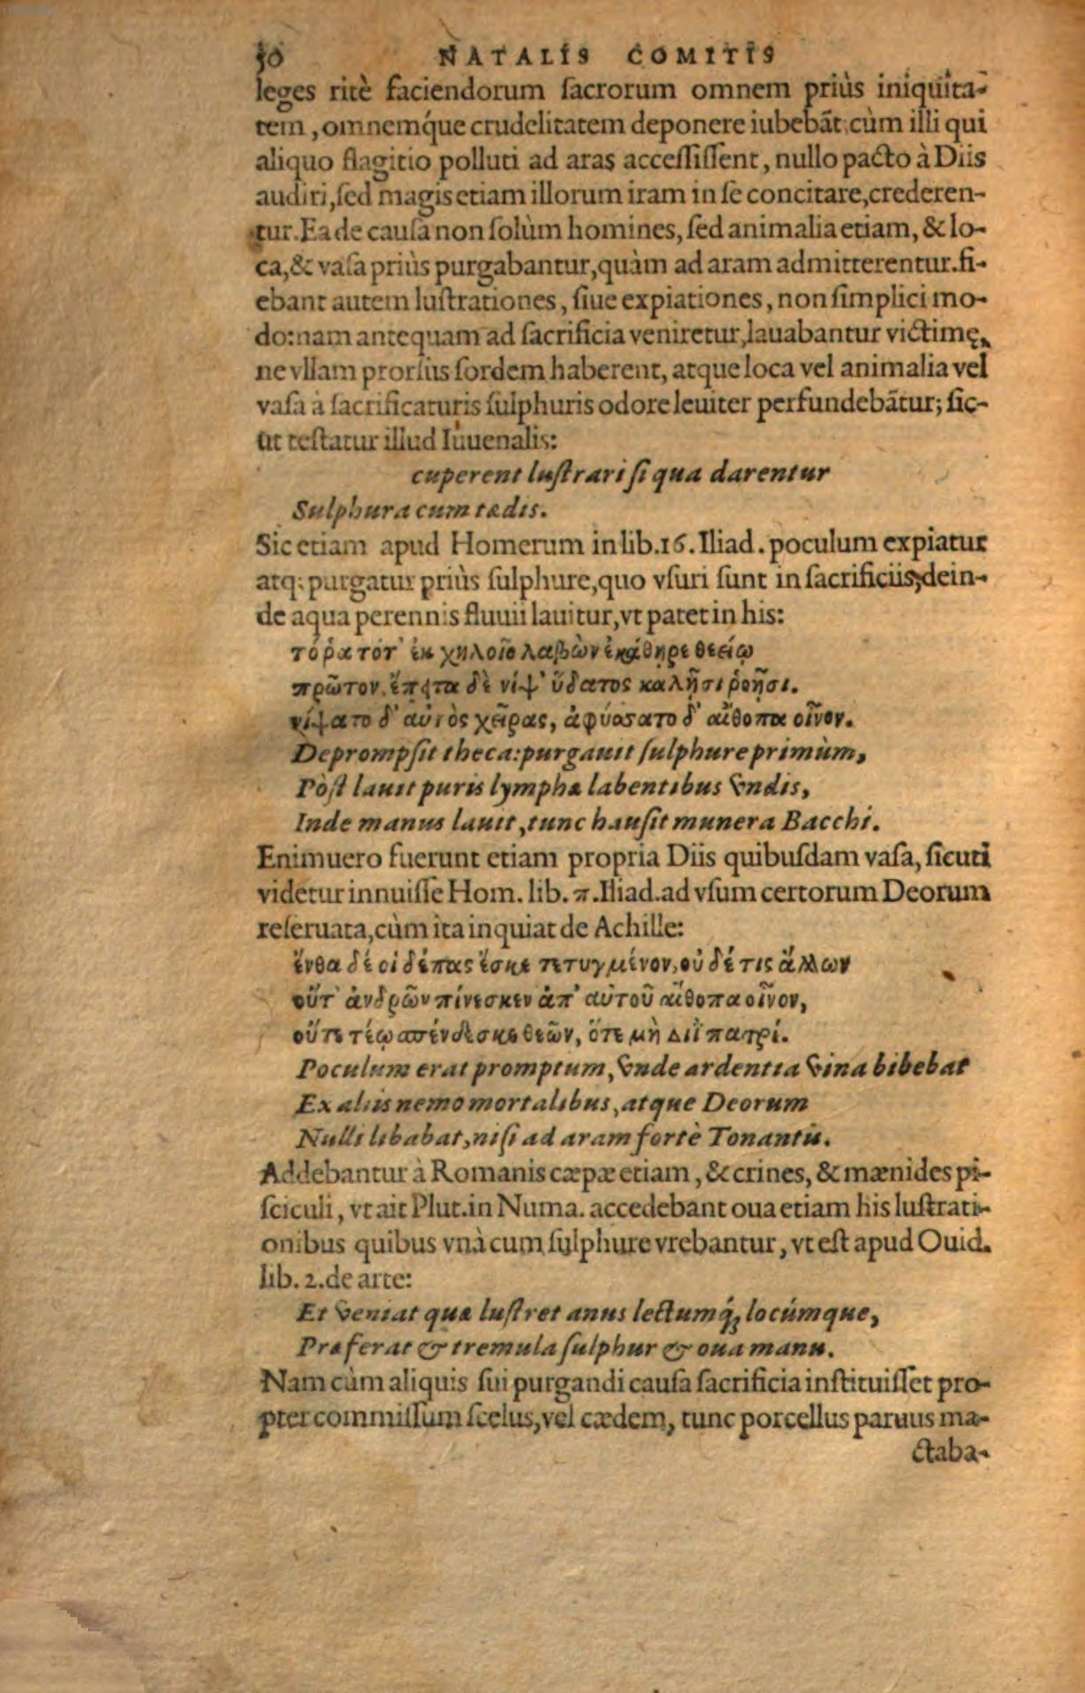 30 NATALIS COMITIS
leges ritè faciendorum sacrorum omnem priùs iniquita-
tem, omnemq́ue crudelitatem deponere iubebāt cùm illi qui
aliquo flagitio polluti ad aras accessissent, nullo pacto à Diis
audiri, sed magis etiam illorum iram in se concitare, crederen-
tur. Ea de causa non solùm homines, sed animalia etiam, & lo-
ca, & vasa priùs purgabantur, quàm ad aram admitterentur. fi-
ebant autem lustrationes, siue expiationes, non simplici mo-
do: nam antequam ad sacrificia veniretur, lauabantur victimę,
ne vllam prorsus sordem haberent, atque loca vel animalia vel
vasa à sacrificaturis sulphuris odore leuiter perfundebātur; sic-
ut testatur illud Iuuenalis:
cuperent lustrari si qua darentur
Sulphura cum tædis.
Sic etiam apud Homerum in lib. 16. Iliad. poculum expiatur
atq; purgatur priùs sulphure, quo vsuri sunt in sacrificiis, dein-
de aqua perennis fluuii lauitur, vt patet in his:
τόρα τότ' ἐκ χηλοῖο λαβὼν ἐκάθηρε θεείῳ
πρῶτον, ἔπειτα δὲ νίψ' ὕδατος καλῇσι ῥοῇσι.
νίψατο δ' αὐτὸς χεῖρας, ἀφύσατο δ' αἴθοπα οἶνον.
Deprompsit theca: purgauit sulphure primùm,
Pòst lauit puris lymphæ labentibus vndis,
Inde manus lauit, tunc hausit munera Bacchi.
Enimuero fuerunt etiam propria Diis quibusdam vasa, sicuti
videtur innuisse Hom. lib. π. Iliad. ad vsum certorum Deorum
reseruata, cùm ita inquiat de Achille:
ἔνθα δέ οἱ δέπας ἔσκε τετυγμένον, οὐδέ τις ἄλλων
οὔτ' ἀνδρῶν πίνεσκεν ἀπ' αὐτοῦ αἴθοπα οἶνον,
οὔτε τέῳ σπένδεσκε θεῶν, ὅτε μὴ Διῒ πατρί.
Poculum erat promptum, vnde ardentia vina bibebat
Ex aliis nemo mortalibus, atque Deorum
Nulli libabat, nisi ad aram fortè Tonantis.
Addebantur à Romanis cæpæ etiam, & crines, & mænides pi-
sciculi, vt ait Plut. in Numa. accedebant oua etiam his lustrati-
onibus quibus vnà cum sulphure vrebantur, vt est apud Ouid.
lib. 2. de arte:
Et veniat quæ lustret anus lectumq́; locúmque,
Præferat & tremula sulphur & oua manu.
Nam cùm aliquis sui purgandi causa sacrificia instituisset pro-
pter commissum scelus, vel cædem, tunc porcellus paruus ma-
ctaba-